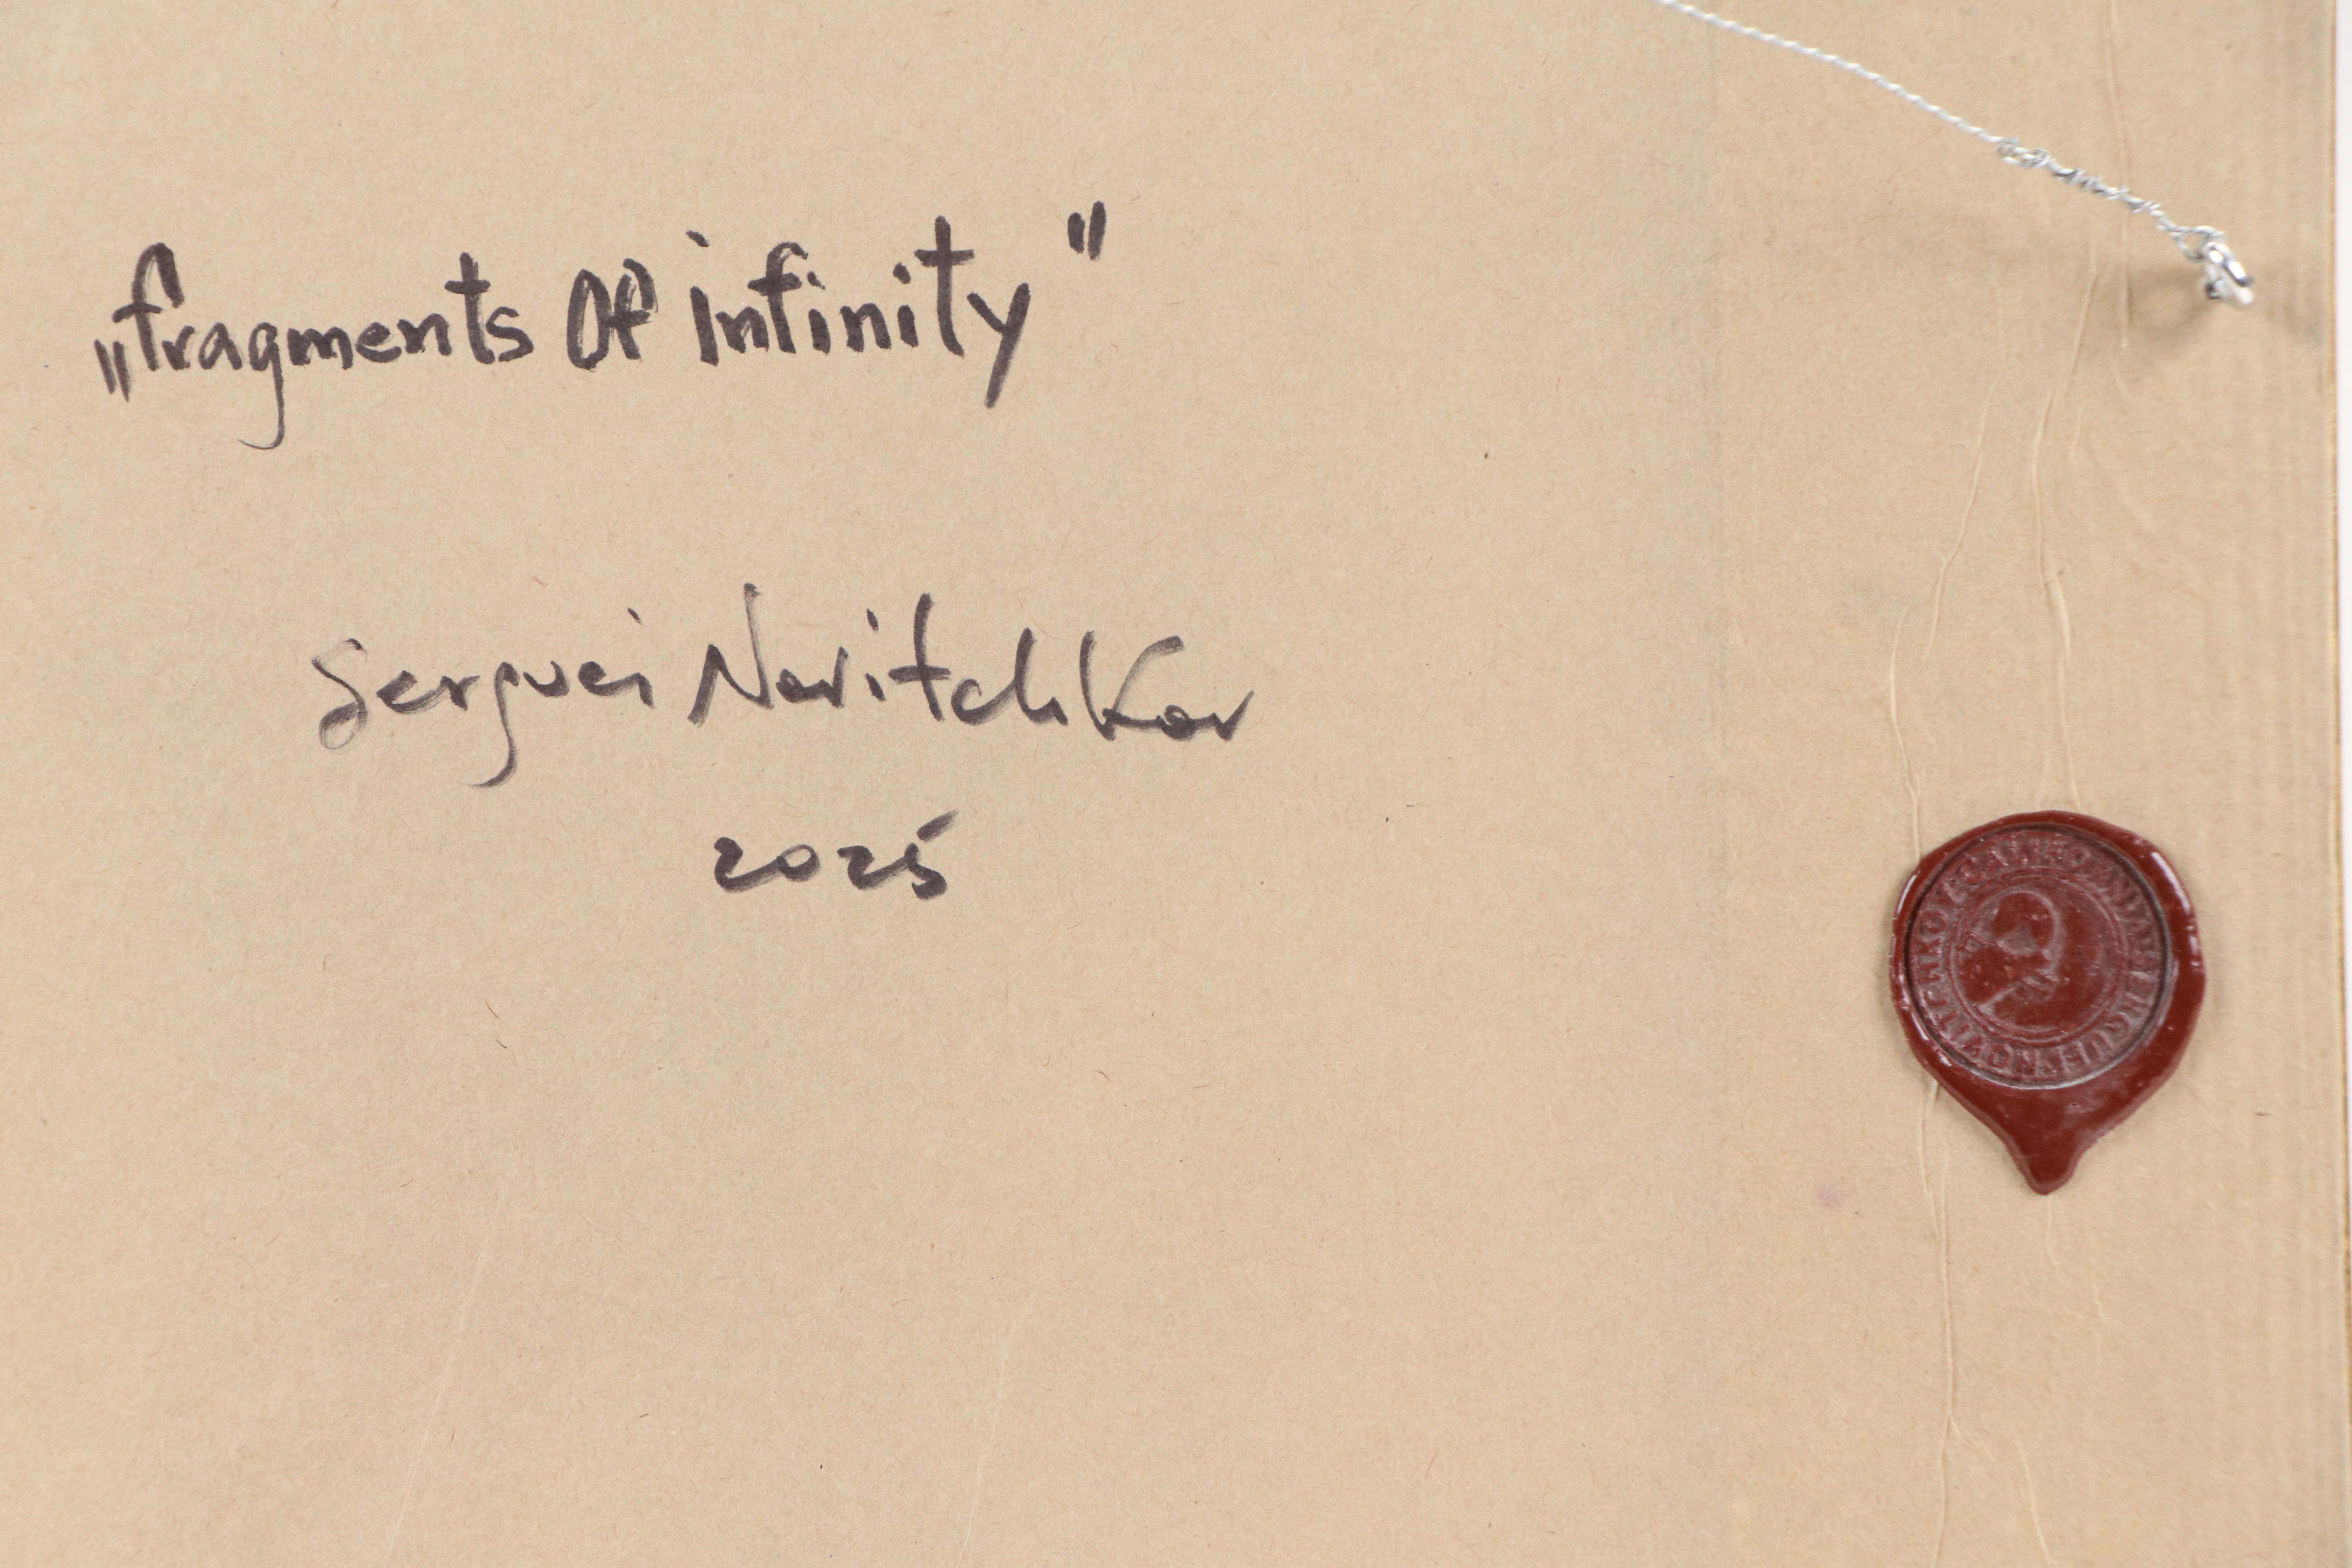 „fragments Of infinity"
Serguei Novitchkov
2025